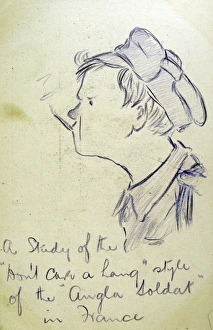 A Study of the
"Don't care a hang" style
of the "Anglo Soldat"
in France